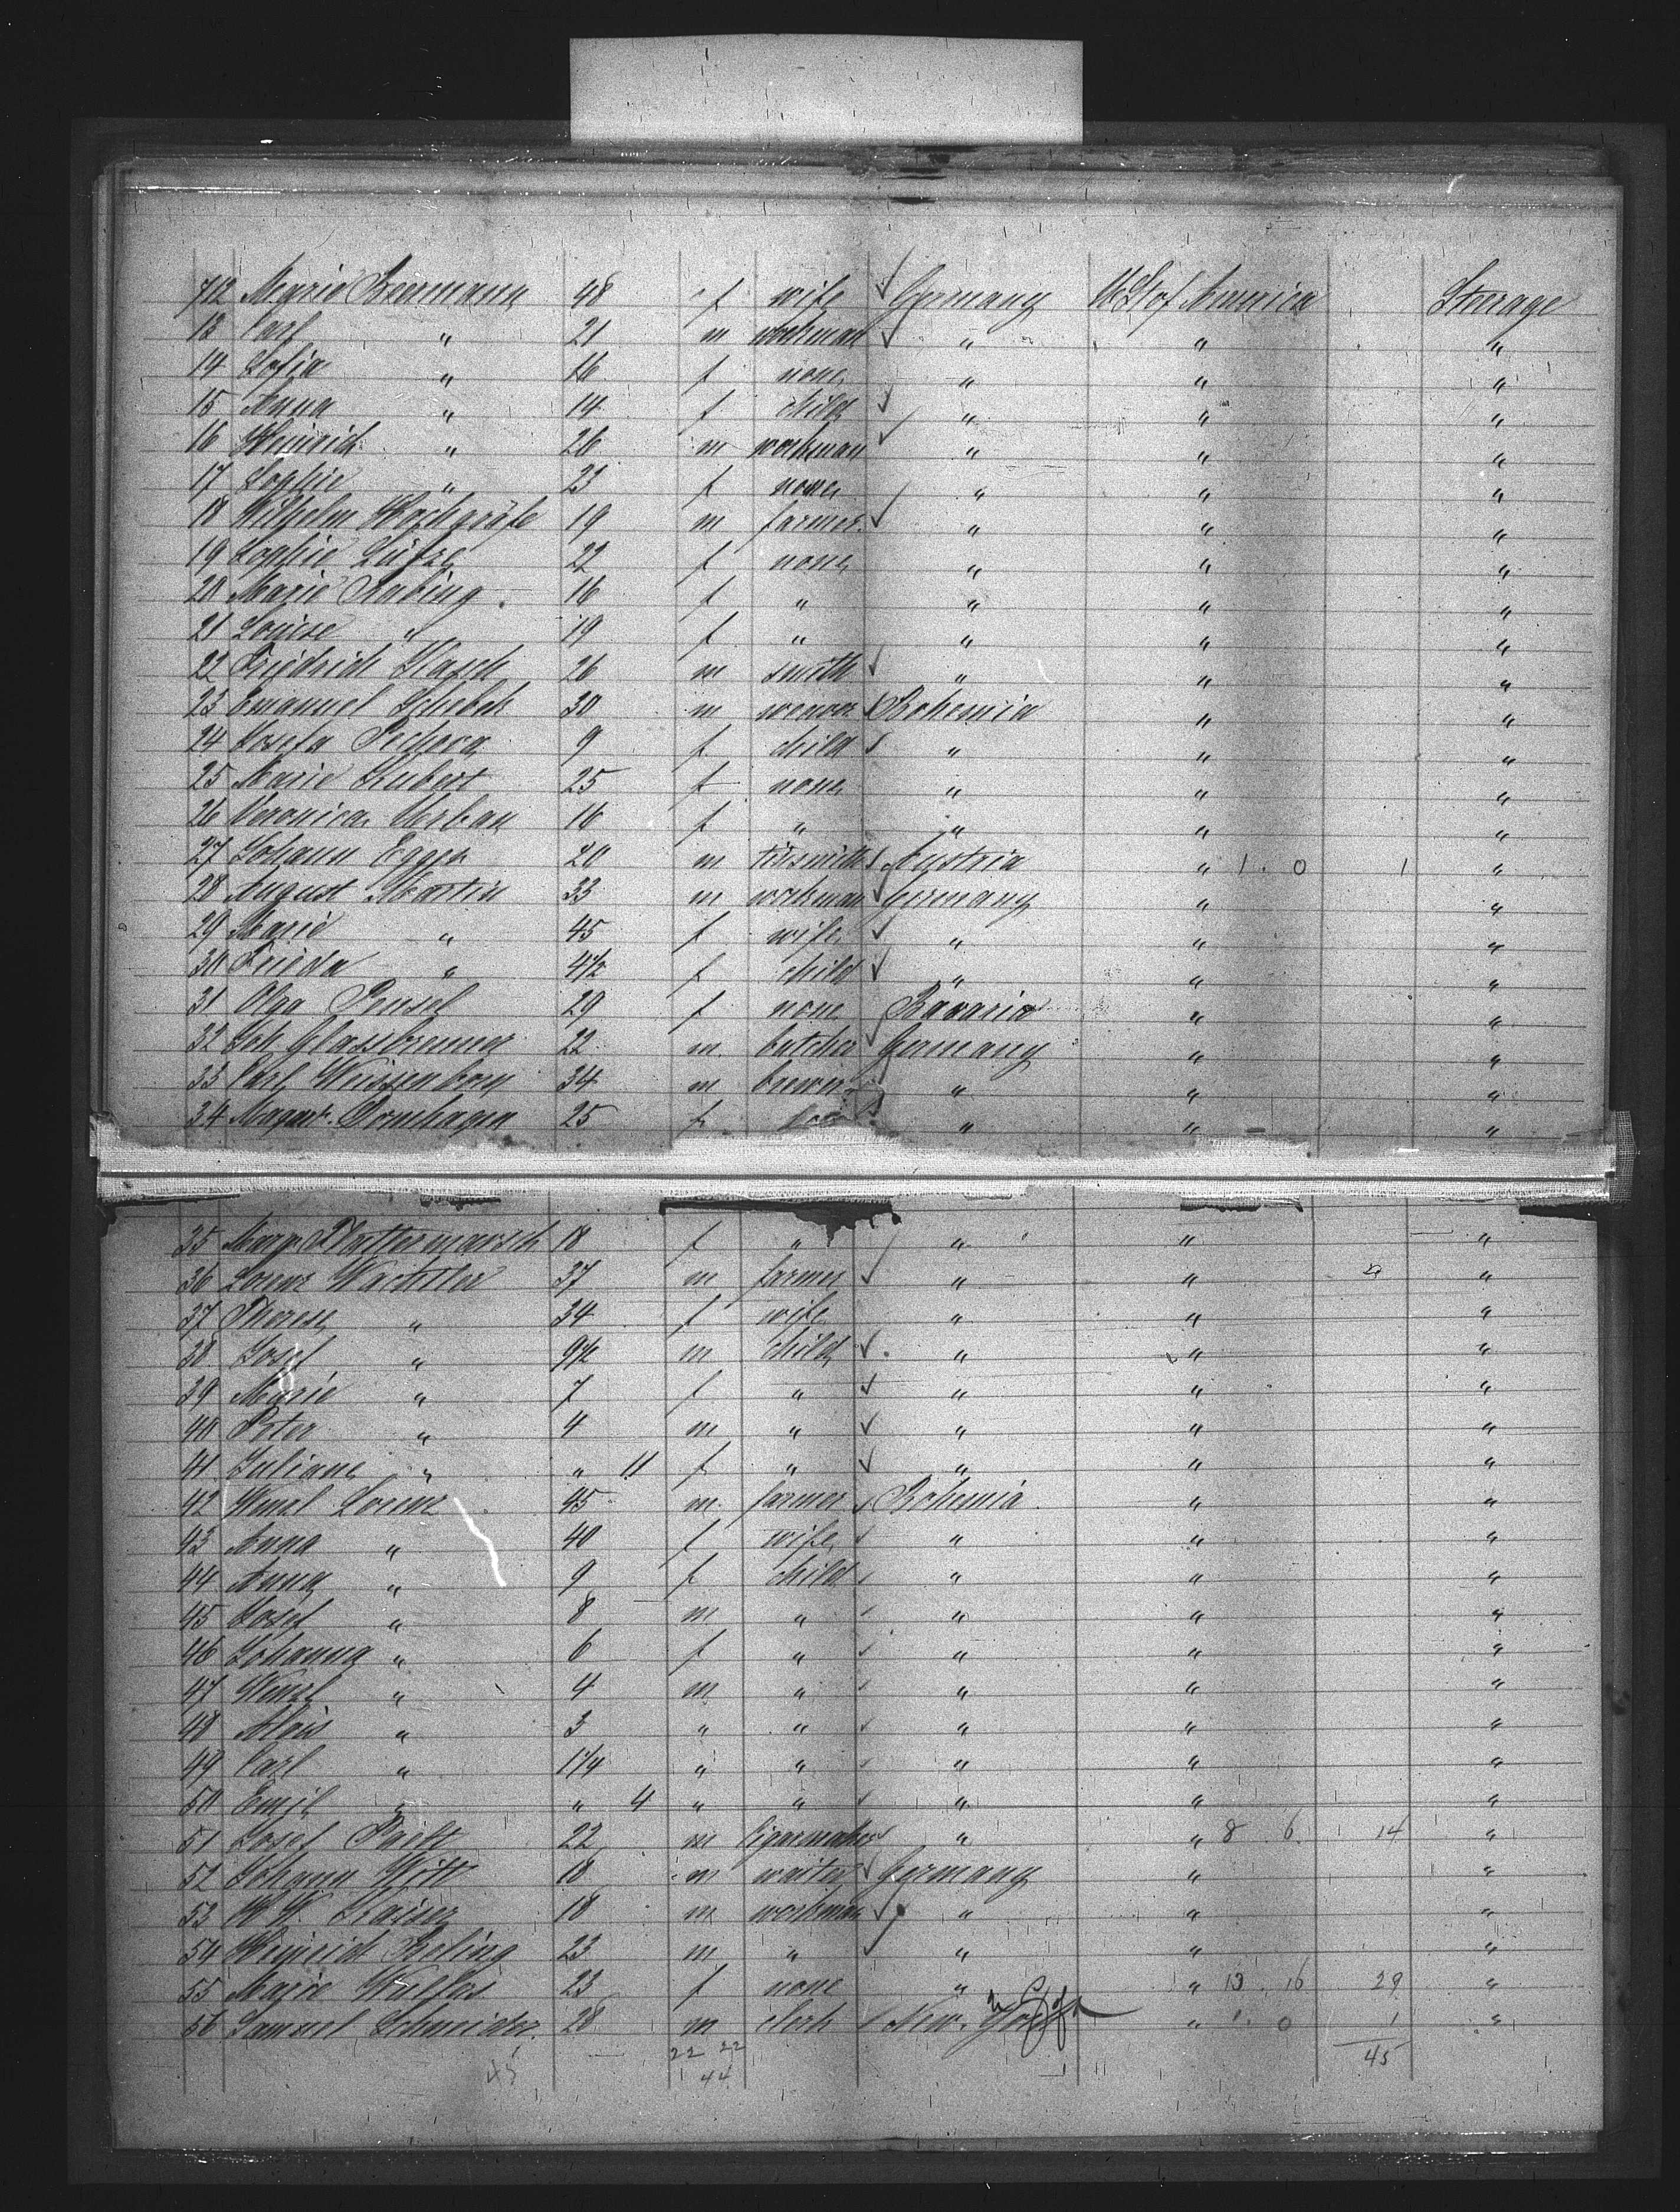 712 Marie Beermann 48 f wife Germany U St of America Steerage
13 Carl " 21 m workman " " "
14 Sofia " 16 f none " " "
15 Anna " 14 f child " " "
16 Heinrich " 26 m workman " " "
17 Sophie " 23 f none " " "
18 Wilhelm 19 m farmer " " "
19 Sophie Lütze 22 f none " " "
20 Marie 16 f " " " "
21 Louise " 19 f " " " "
22 Friedrich Hasch 26 m smith " " "
23 Emanuel 30 m weaver Bohemia " "
24 Josefa Pechova 9 f child " " "
25 Marie Kubert 25 f none " " "
26 Veronica Urban 16 f " " " "
27 Johann Egger 20 m tinsmith Austria " 1. 0 1 "
28 August Martin 33 m workman Germany " "
29 Marie " 45 f wife " " "
30 Frieda " 4½ f child " " "
31 Olga 29 f none Bavaria " "
32 Joh Glassbrenner 22 m. butcher Germany " "
33 Carl Weissenborn 34 m brewer " " "
34 Magar. Dornhagen 25 f. " " "
35 18 f " " " "
36 Lorenz Wachtler 37 m farmer " " "
37 Therese " 34 f wife " " "
38 Josef " 9½ m child " " "
39 Marie " 7 f " " " "
40 Peter " 4 m " " " "
41 Juliane " " 11 f " " " "
42 Wenzl Lorenz 45 m. farmer Bohemia " "
43 Anna " 40 f wife " " "
44 Anna " 9 f child " " "
45 Josef " 8 m " " " "
46 Johanna " 6 f " " " "
47 Wenzl " 4 m " " " "
48 Alois " 3 " " " " "
49 Carl " 1¼ " " " " "
50 Emil " " 4 " " " " "
51 Josef 22 m Cigarmaker " " 8. 6. 14 "
52 Johann Witt 18 m waiter Germany " "
53 Kaiser 18 m workman " " "
54 Heinrich 23 m " " " "
55 Marie Wulfes 23 f none " " 13. 16 29 "
56 Samuel Schneider 28 m clerk New York " 1. 0 1 "
22 22 45
44